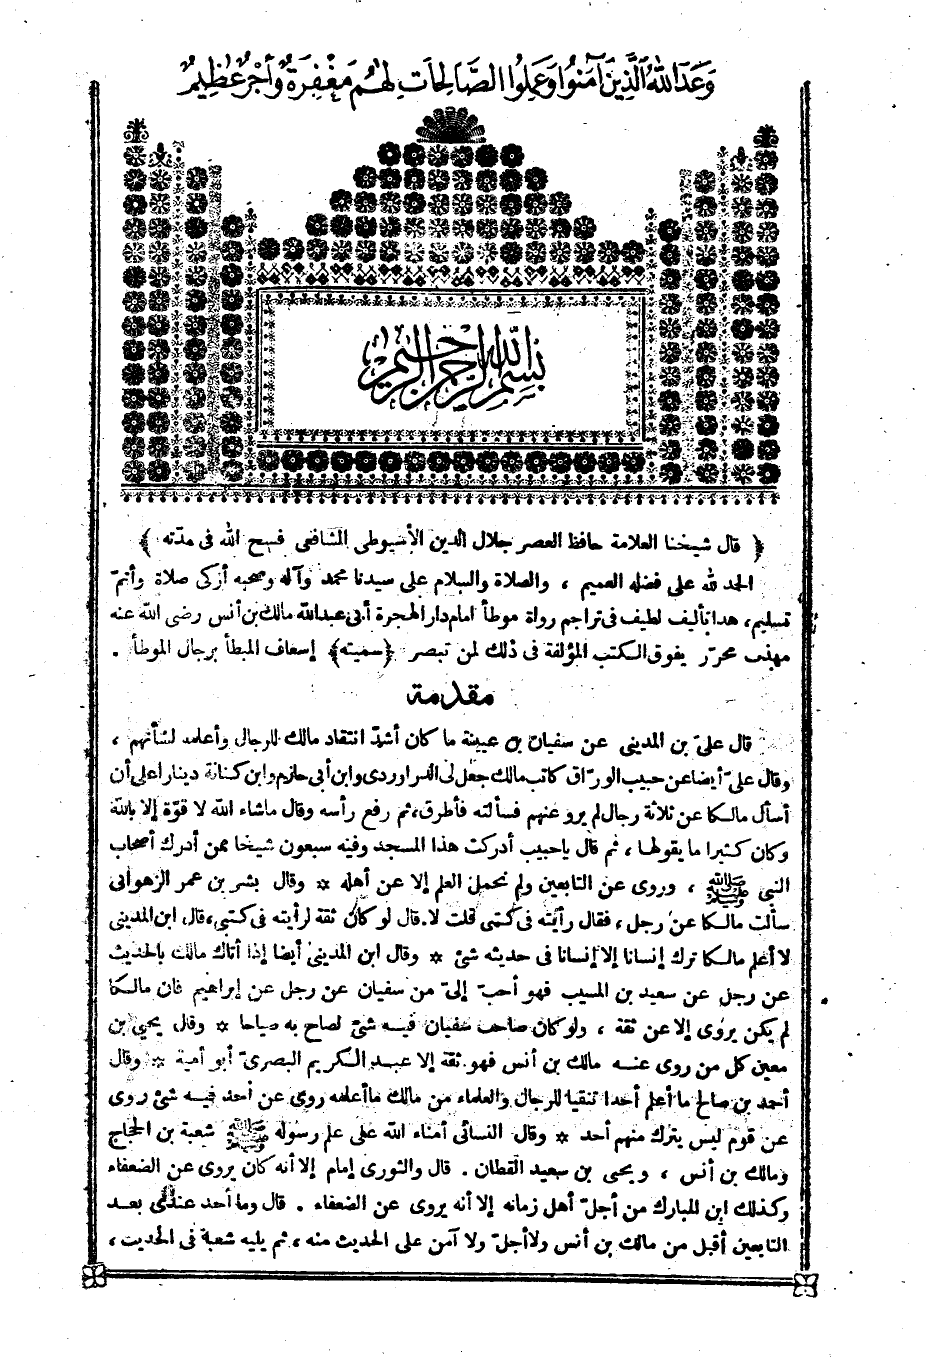 وعد الله الذين آمنوا وعملوا الصالحات لهم مغفرة وأجر عظيم
بسم الله الرحمن الرحيم
﴿ قال شيخنا العلامة حافظ العصر جلال الدين الأسيوطى الشافعى فسح الله فى مدّته ﴾
الحمد لله على فضله العميم ، والصلاة والسلام على سيدنا محمد وآله وصحبه أزكى صلاة وأتمّ
تسليم ، هذا تأليف لطيف فى تراجم رواة موطأ امام دار الهجرة أبى عبد الله مالك بن أنس رضى الله عنه
مهذب محرّر يفوق الكتب المؤلفة فى ذلك لمن تبصر ﴿سميته﴾ إسعاف المبطأ برجال الموطأ .
مقدمة
قال علىّ بن المدينى عن سفيان بن عيينة ما كان أشدّ انتقاد مالك للرجال وأعلمه لشأنهم ،
وقال علىّ أيضا عن حبيب الورّاق كاتب مالك جعل لى الدراوردى وابن أبى حازم وابن كنانة دينارا على أن
أسأل مالكا عن ثلاثة رجال لم يرو عنهم فسألته فأطرق ، ثم رفع رأسه وقال ماشاء الله لا قوّة إلا بالله
وكان كثيرا ما يقولها ، ثم قال ياحبيب أدركت هذا المسجد وفيه سبعون شيخا ممن أدرك أصحاب
النبي ﷺ ، وروى عن التابعين ولم نحمل العلم إلا عن أهله * وقال بشر بن عمر الزهرانى
سألت مالكا عن رجل ، فقال رأيته فى كتبى قلت لا . قال لو كان ثقة لرأيته فى كتبى ، قال ابن المدينى
لا أعلم مالكا ترك إنسانا إلا إنسانا فى حديثه شئ * وقال ابن المدينى أيضا إذا أتاك مالك بالحديث
عن رجل عن سعيد بن المسيب فهو أحبّ إلىّ من سفيان عن رجل عن إبراهيم فان مالكا
لم يكن يروى إلا عن ثقة ، ولو كان صاحب سفيان فيه شئ لصاح به صياحا * وقال يحيى بن
معين كل من روى عنه مالك بن أنس فهو ثقة إلا عبد الكريم البصرىّ أبو أمية * وقال
أحمد بن صالح ما أعلم أحدا تنقيا للرجال والعلماء من مالك ما أعلمه روى عن أحد فيه شئ روى
عن قوم ليس يترك منهم أحد * وقال النسائى أمناء الله على علم رسوله ﷺ شعبة بن الحجاج
ومالك بن أنس ، ويحيى بن سعيد القطان . قال والثورى إمام إلا أنه كان يروى عن الضعفاء
وكذلك ابن المبارك من أجلّ أهل زمانه إلا أنه يروى عن الضعفاء . قال وما أحد عندى بعد
التابعين أقبل من مالك بن أنس ولا أجلّ ولا آمن على الحديث منه ، ثم يليه شعبة فى الحديث ،